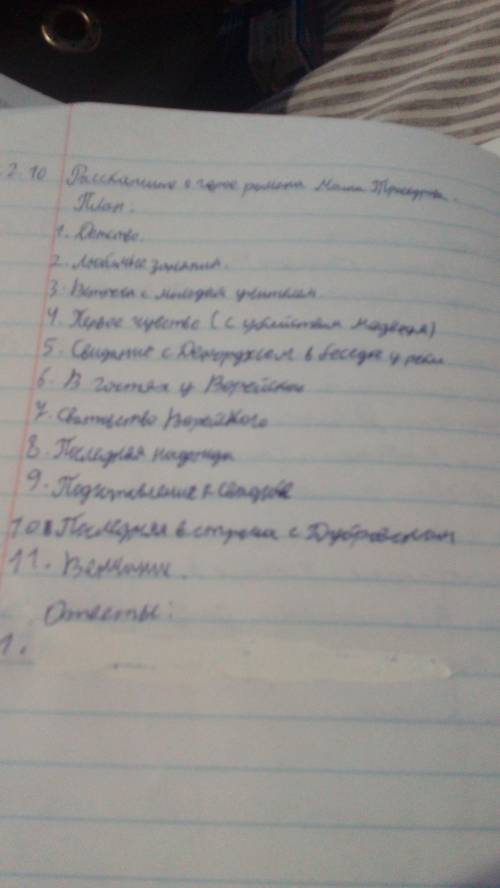 2.10 Расскажите о герое романа Маша Троекурова.
План:
1. Детство.
2. Любимые занятия.
3. Встреча с молодым учителем
4. Первое чувство (с убийством медведя)
5. Свидание с Дефорджем в беседке у реки
6. В гостях у Верейского
7. Сватовство Верейского
8. Последняя надежда
9. Подготовление к свадьбе
10. Последняя встреча с Дубровским
11. Венчание.
Ответы:
1.